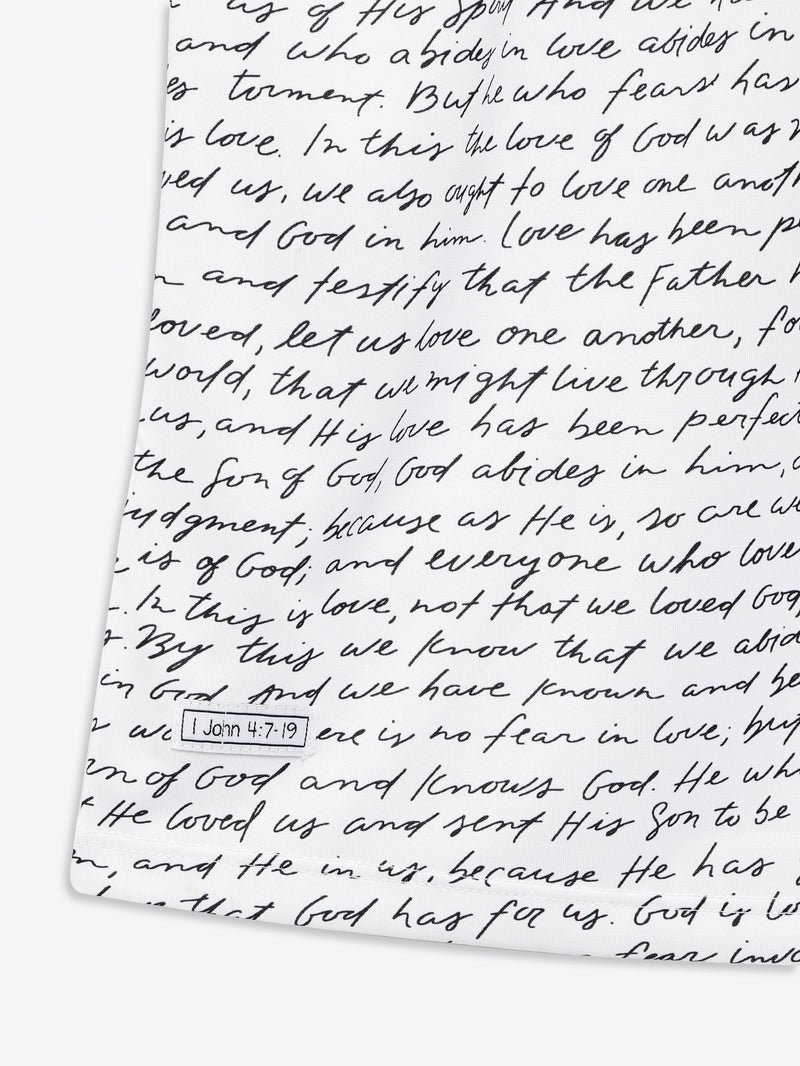 us of His Spirit And we
and who abides in love abides in
torment. But he who fears has
is love. In this the love of God was
us, we also ought to love one
and God in him. Love has been
and testify that the Father
loved, let us love one another,
world, that we might live through
us, and His love has been
the Son of God, God abides in him,
judgment; because as He is, so are we
is of God; and everyone who
. In this is love, not that we loved God
. By this we know that we
in God And we have known and
1 John 4:7-19
ere is no fear in love; but
of God and knows God. He who
He loved us and sent His Son to be
, and He in us, because He has
that God has for us. God is
fear